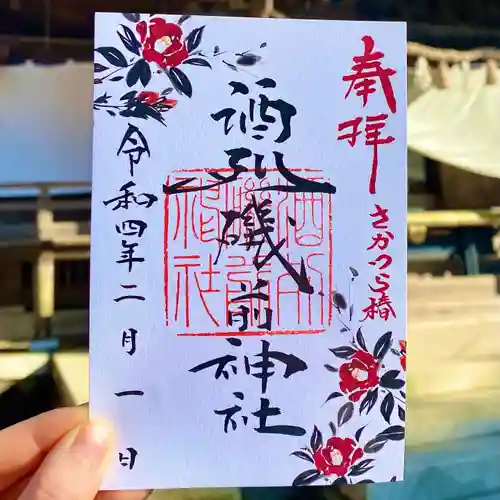 奉拝
さかつら椿
酒列磯前神社
令和四年二月一日
酒列
磯前
神社